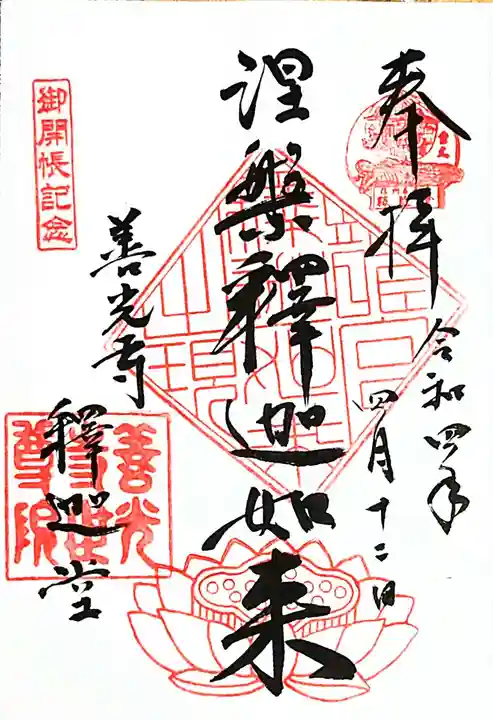 奉拝
令和四年
四月十二日
涅槃釋迦如来
御開帳記念
善光寺
釋迦堂
善光寺世尊院